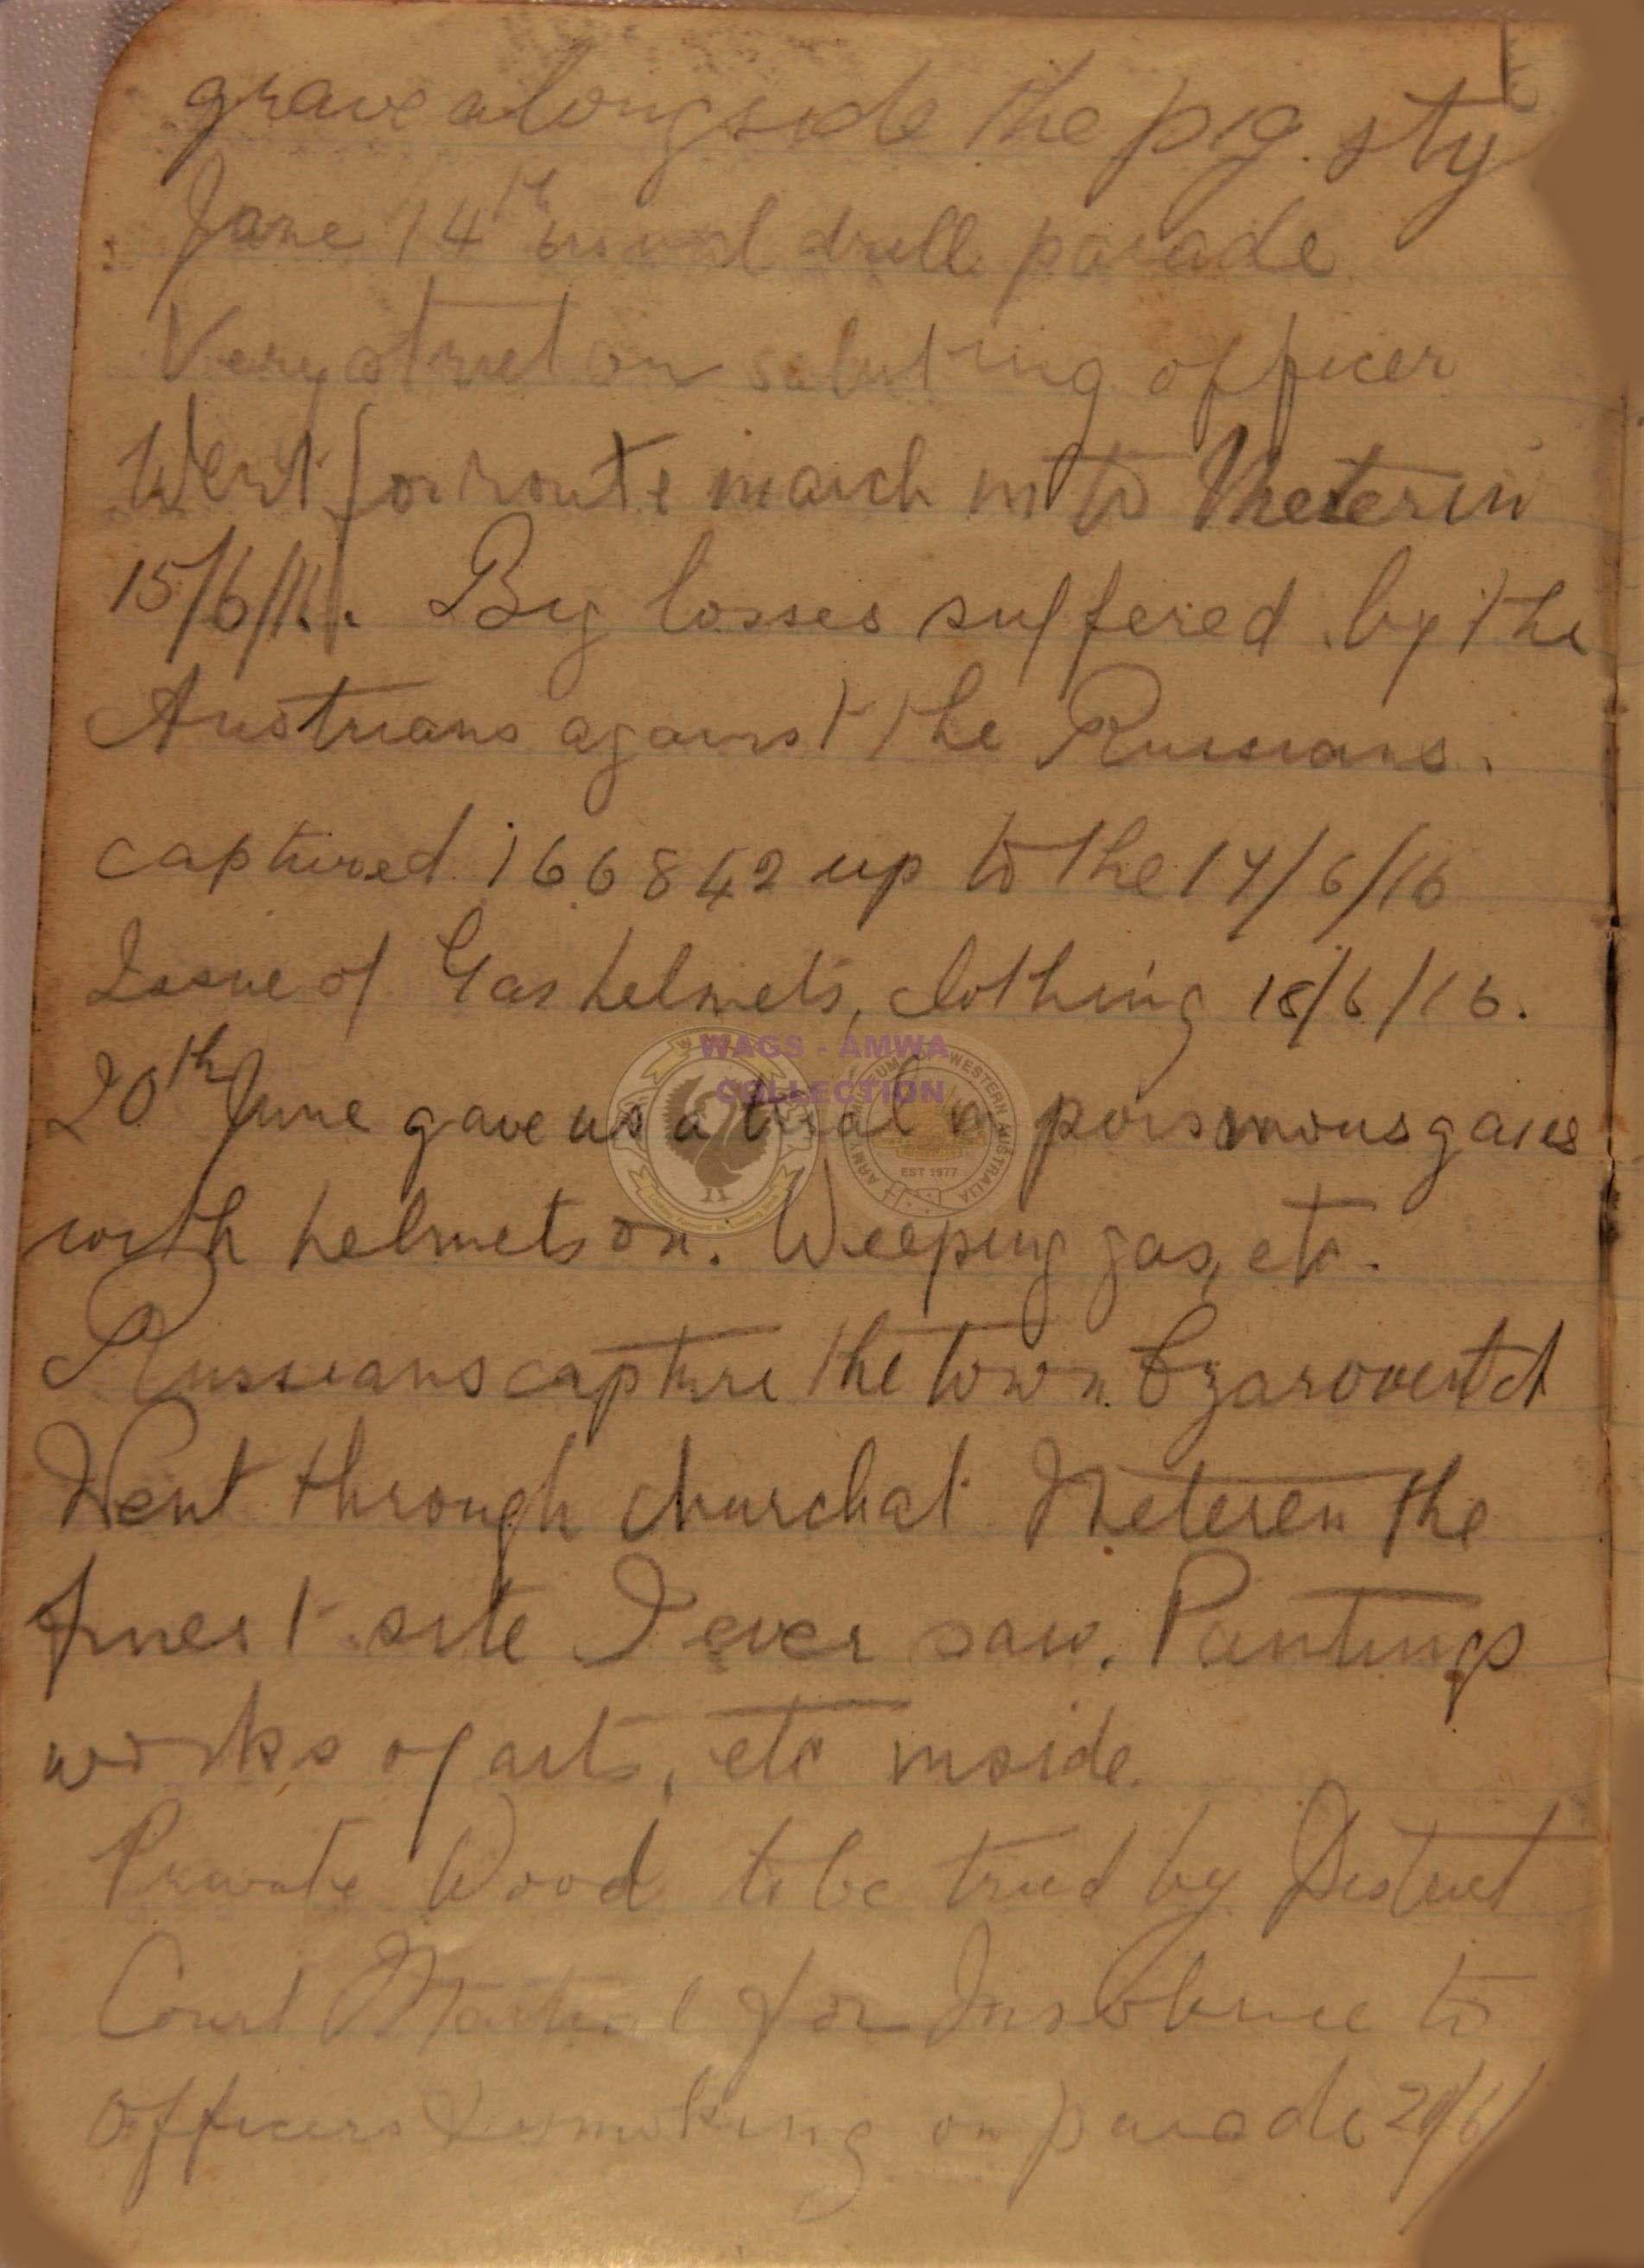 grave alongside the pig sty
June 14th usual drill parade
Very strict on saluting officer
Went for route march into Meterin
15/6/16. Big losses suffered by the
Austrians against the Russians.
captured 166842 up to the 14/6/16
Issue of Gas helmets, clothing 18/6/16.
20th June gave us a trial in poisonous gases
with helmets on. Weeping gas, etc.
Russians capture the town Czarovitch
Went through church at Meteren the
finest site I ever saw. Paintings
works of arts, etc inside.
Private Wood to be tried by District
Court Martial for Insolence to
Officers & smoking on parade
WAGS - AMWA
COLLECTION
EST 1977